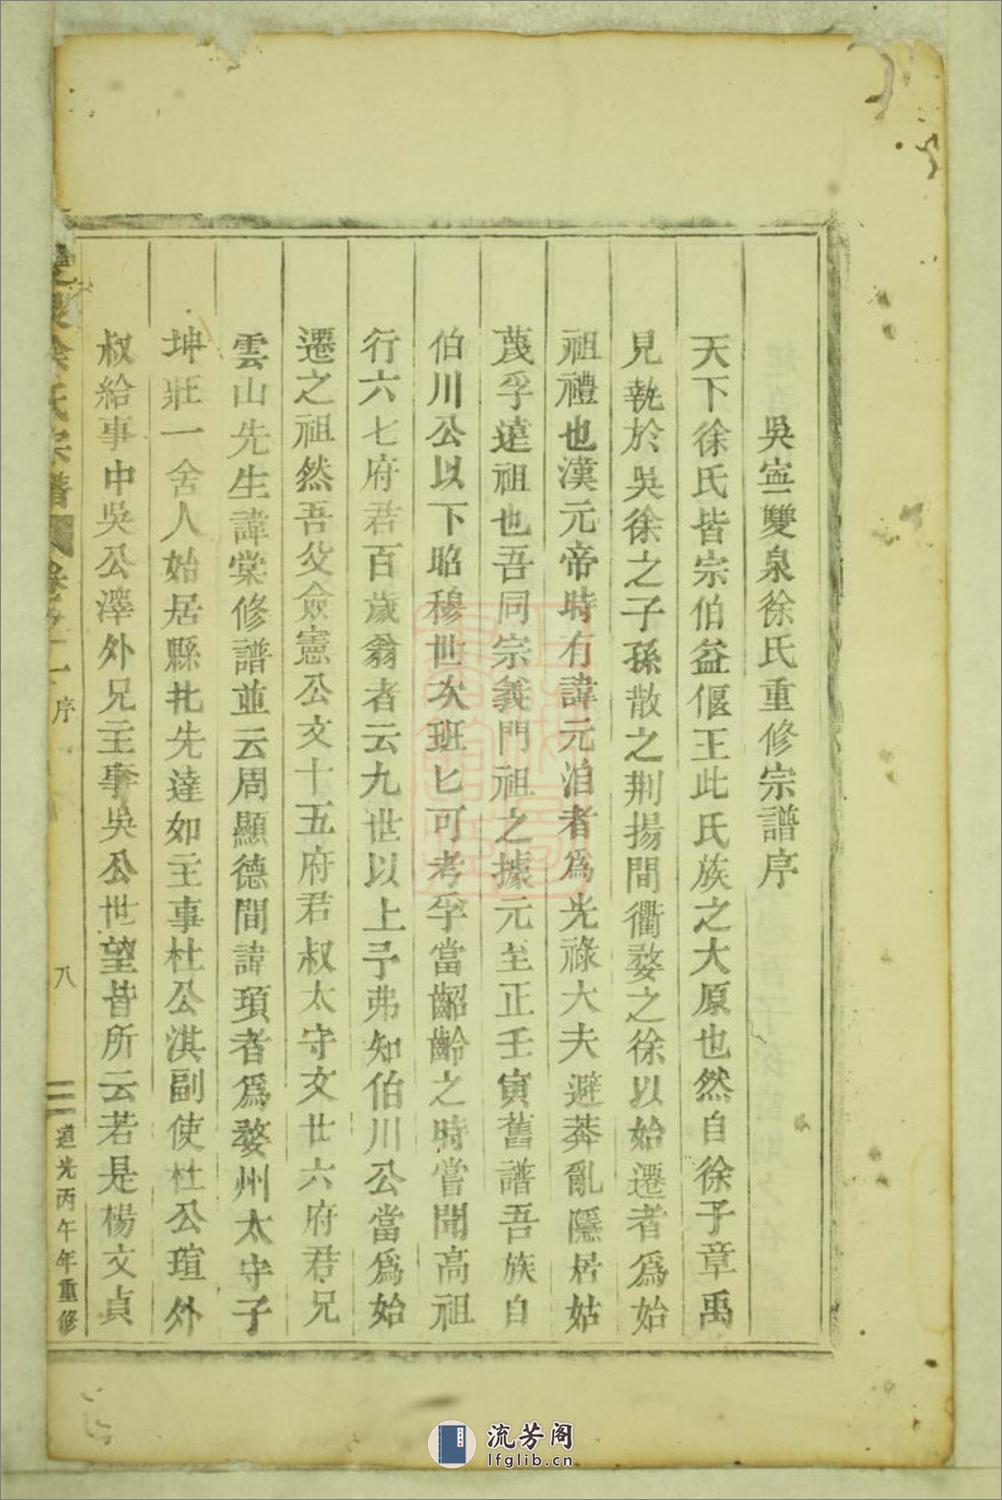 吳寍雙泉徐氏重修宗譜序
天下徐氏皆宗伯益偃王此氏族之大原也然自徐子章禹
見執於吳徐之子孫散之荆揚間衢婺之徐以始遷者爲始
祖禮也漢元帝時有諱元洎者爲光祿大夫避莽亂隱居姑
蔑孚遠祖也吾同宗義門祖之據元至正壬寅舊譜吾族自
伯川公以下昭穆世次班匕可考孚當齠齡之時嘗聞高祖
行六七府君百歲翁者云九世以上予弗知伯川公當爲始
遷之祖然吾父僉憲公文十五府君叔太守文廿六府君兄
雲山先生諱棠修譜並云周顯德間諱頊者爲婺州太守子
坤莊一舍人始居縣北先達如主事杜公淇副使杜公瑄外
叔給事中吳公澤外兄主事吳公世望皆所云若是楊文貞
雙泉徐氏宗譜 卷之一 序 八 道光丙午年重修
流芳阁
lfglib.cn